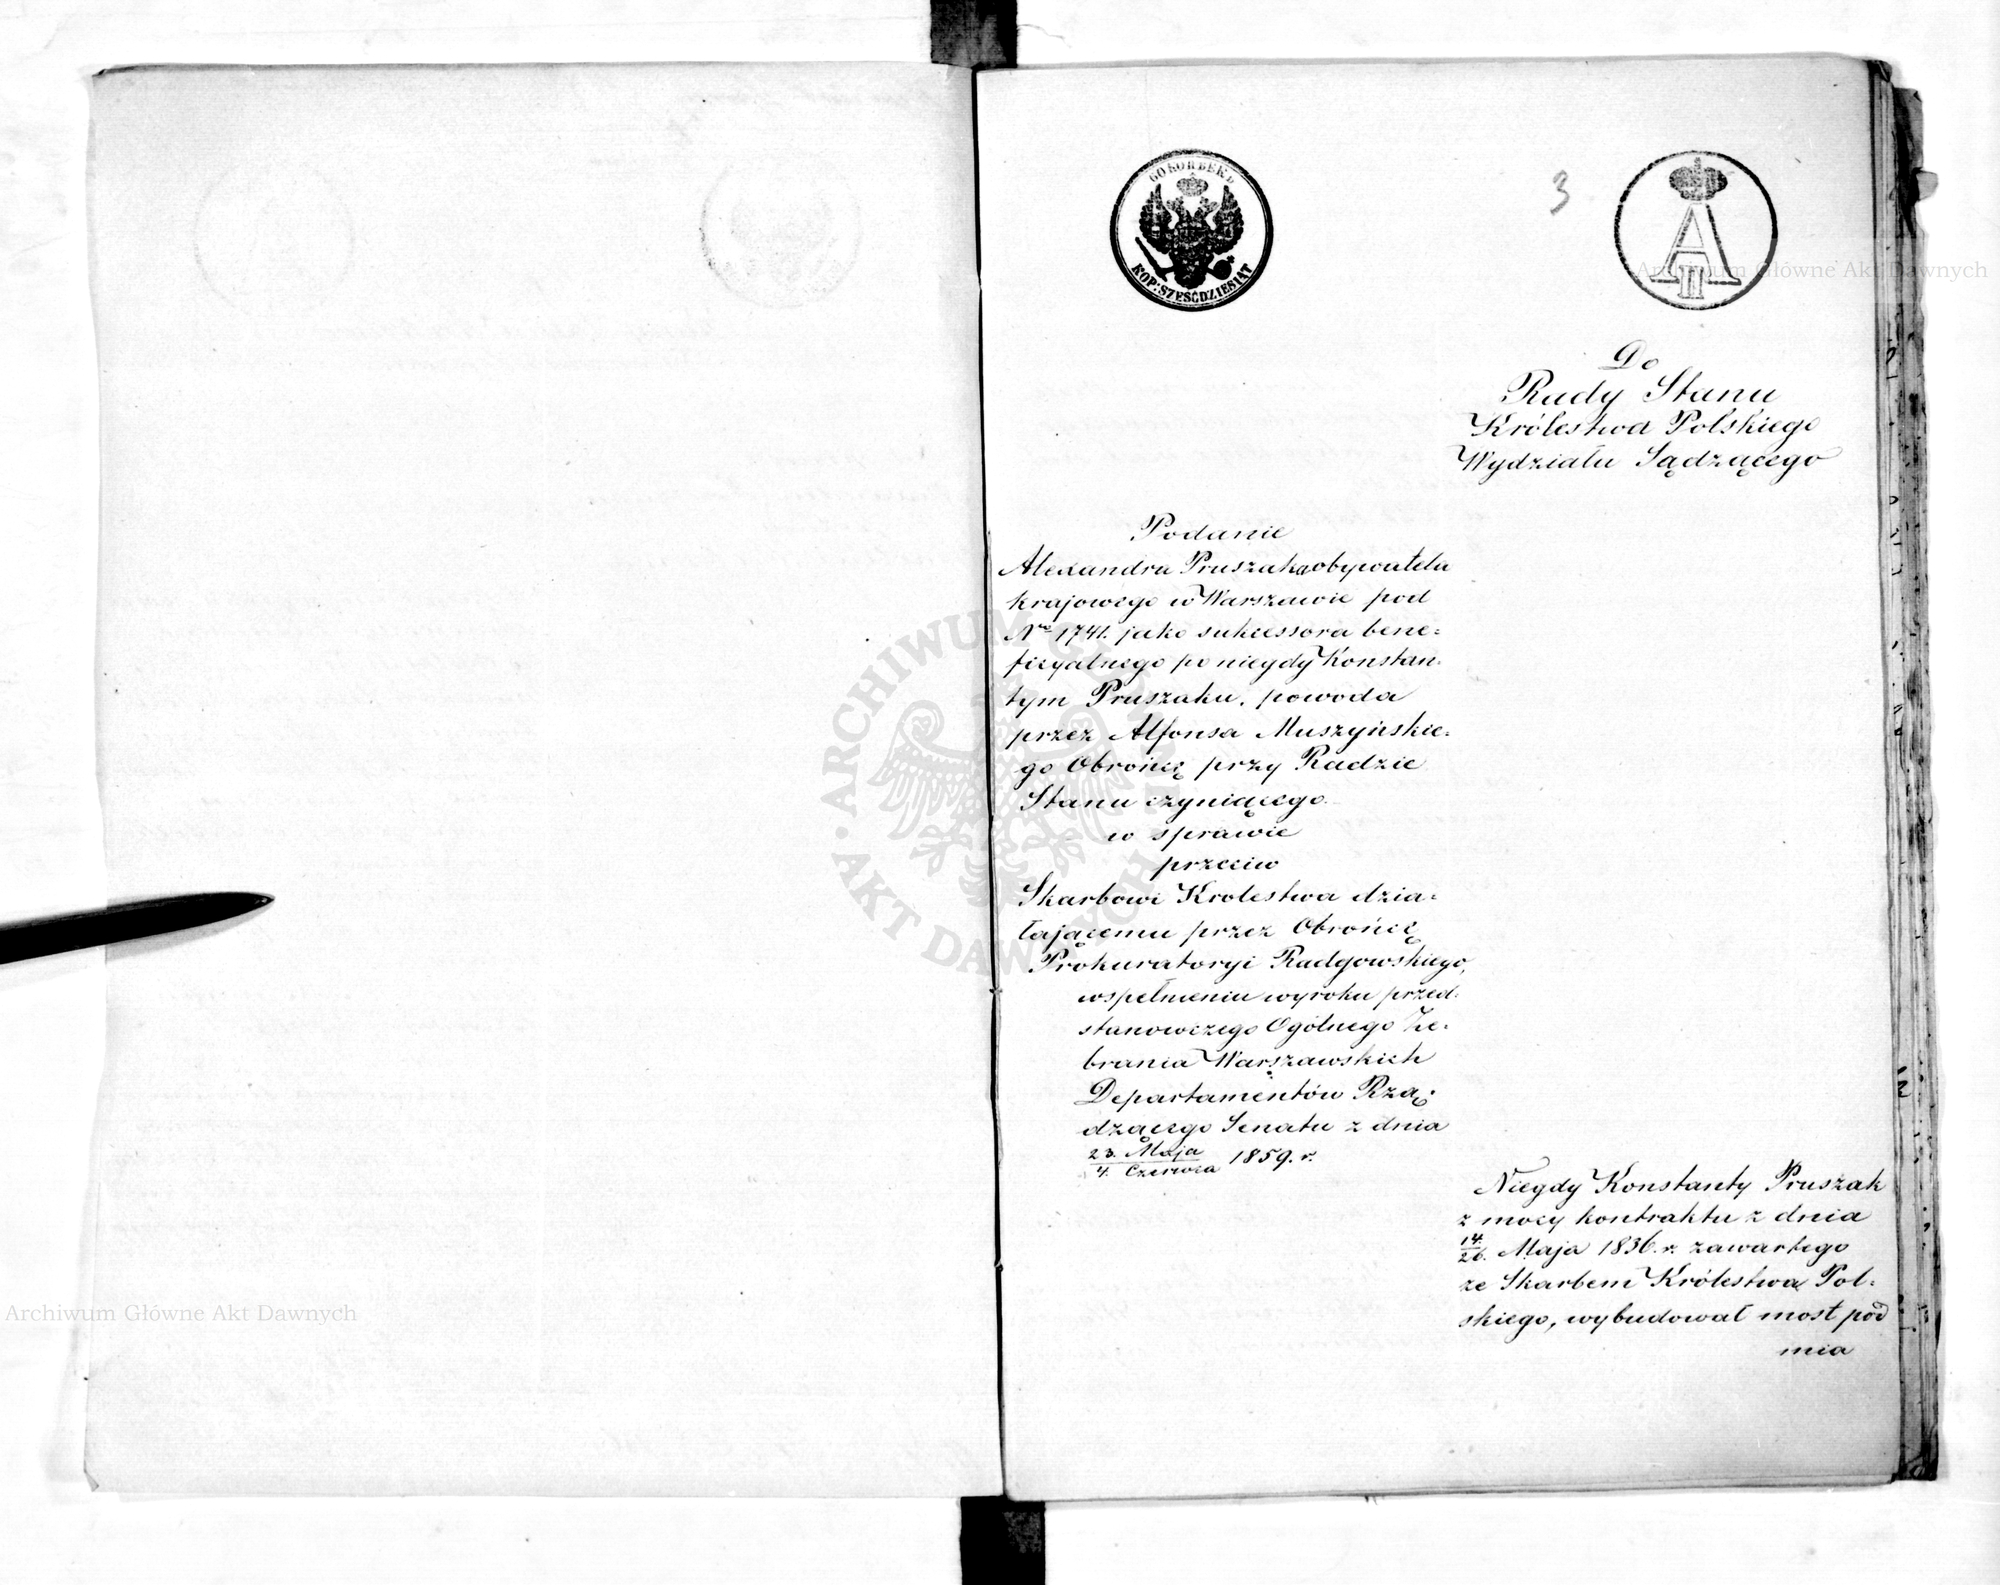 60 КОПѢЕКЪ
KOP: SZEŚĆDZIESIĄT
3
A II
Do
Rady Stanu
Królestwa Polskiego
Wydziału Sądzącego
Podanie
Alexandra Pruszaka obywatela
krajowego w Warszawie pod
Nro 1741. jako sukcessora bene=
ficyalnego po niegdy Konstan=
tym Pruszaku, powoda
przez Alfonsa Muszyńskie=
go Obrońcę przy Radzie
Stanu czyniącego
w sprawie
przeciw
Skarbowi Krolestwa dzia=
łającemu przez Obrońcę
Prokuratoryi Radgowskiego,
wspełnieniu wyroku przed=
stanowczego Ogólnego Ze=
brania Warszawskich
Departamentów Rzą=
dzącego Senatu z dnia
23. Maja
4. Czerwca 1859. r.
Niegdy Konstanty Pruszak
z mocy kontraktu z dnia
14/26. Maja 1836. r. zawartego
ze Skarbem Królestwa Pol=
skiego, wybudował most pod
mia
ARCHIWUM GŁÓWNE AKT DAWNYCH
Archiwum Główne Akt Dawnych
Archiwum Główne Akt Dawnych